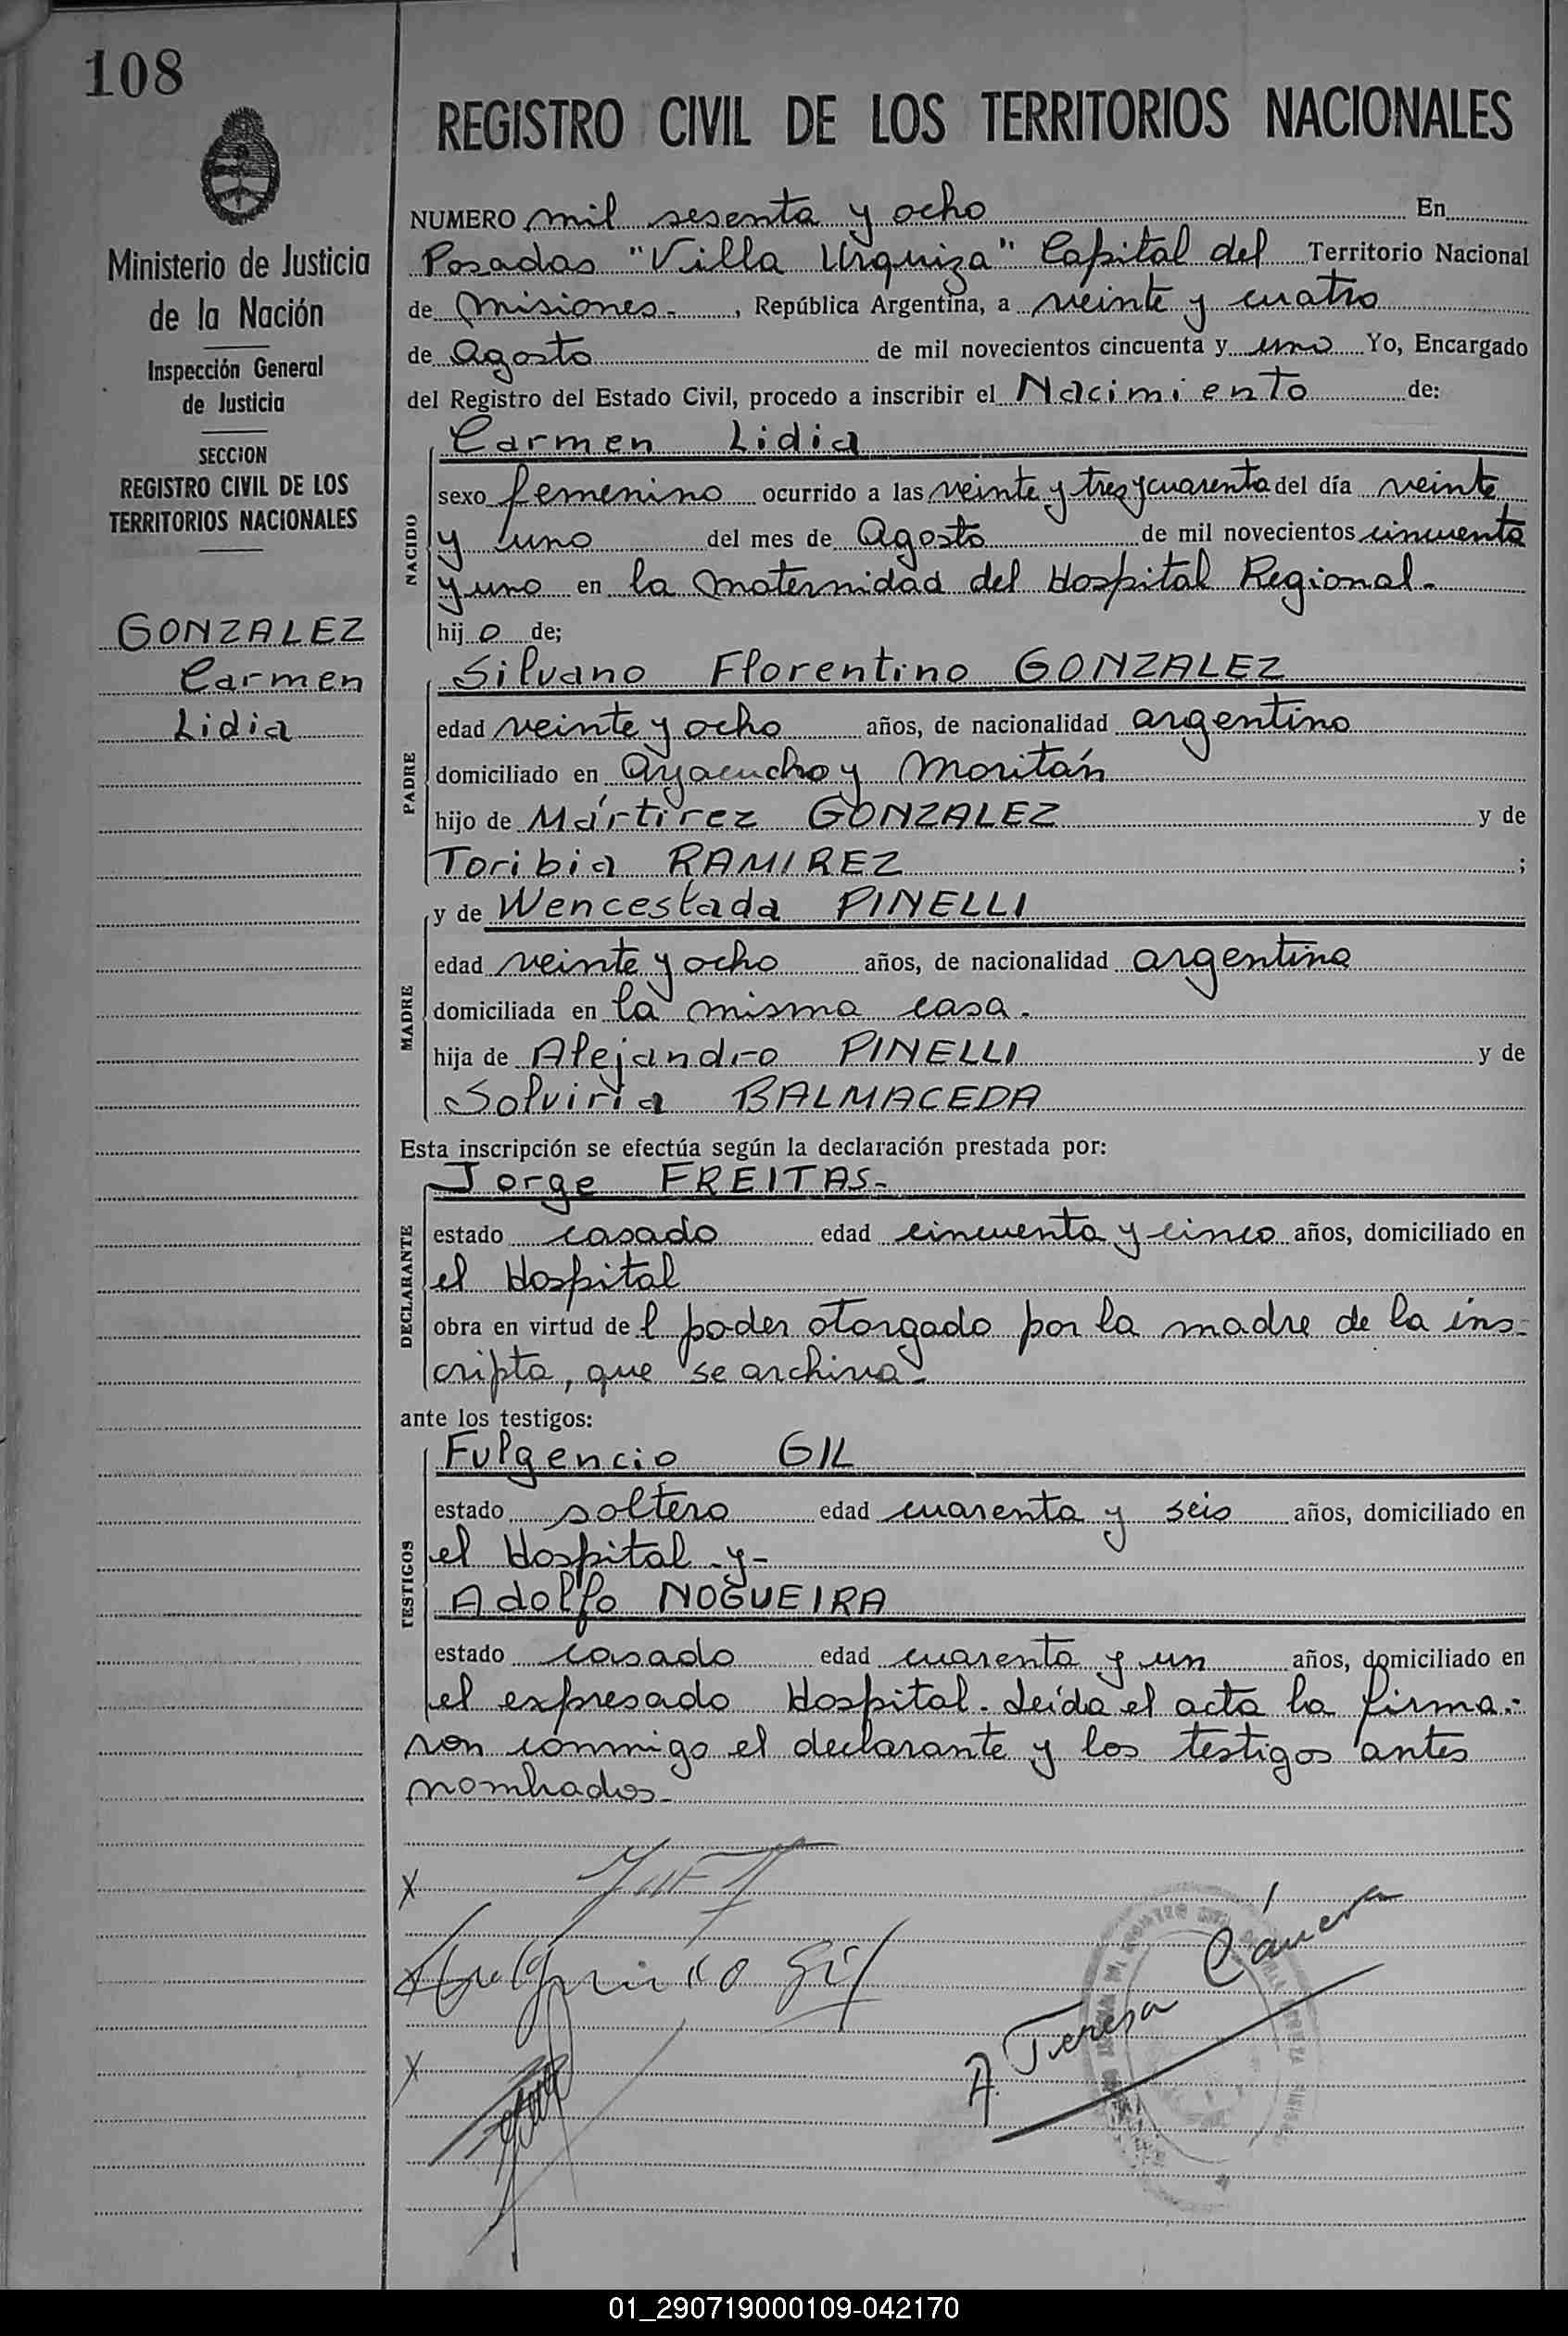 108
REGISTRO CIVIL DE LOS TERRITORIOS NACIONALES
Ministerio de Justicia
de la Nación
Inspección General
de Justicia
SECCION
REGISTRO CIVIL DE LOS
TERRITORIOS NACIONALES
GONZALEZ
Carmen
Lidia
NUMERO mil sesenta y ocho En
Posadas "Villa Urquiza" Capital del Territorio Nacional
de Misiones.-, República Argentina, a veinte y cuatro
de Agosto de mil novecientos cincuenta y uno Yo, Encargado
del Registro del Estado Civil, procedo a inscribir el Nacimiento de:
NACIDO
Carmen Lidia
sexo femenino ocurrido a las veinte y tres y cuarenta del día veinte
y uno del mes de Agosto de mil novecientos cincuenta
y uno en la Maternidad del Hospital Regional.-
hijo de;
PADRE
Silvano Florentino GONZALEZ
edad veinte y ocho años, de nacionalidad argentino
domiciliado en Ayacucho y Moritán
hijo de Mártirez GONZALEZ y de
Toribia RAMIREZ ;
MADRE
y de Wenceslada PINELLI
edad veinte y ocho años, de nacionalidad argentina
domiciliada en la misma casa.-
hija de Alejandro PINELLI y de
Solviria BALMACEDA
Esta inscripción se efectúa según la declaración prestada por:
DECLARANTE
Jorge FREITAS.-
estado casado edad cincuenta y cinco años, domiciliado en
el Hospital
obra en virtud del poder otorgado por la madre de la ins-
cripta, que se archiva.-
ante los testigos:
TESTIGOS
Fulgencio GIL
estado soltero edad cuarenta y seis años, domiciliado en
el Hospital -y-
Adolfo NOGUEIRA
estado casado edad cuarenta y un años, domiciliado en
el expresado Hospital. Leída el acta la firma-
ron conmigo el declarante y los testigos antes
nombrados.-
x
x Fulgencio Gil
x
A. Teresa Cámera
01_290719000109-042170